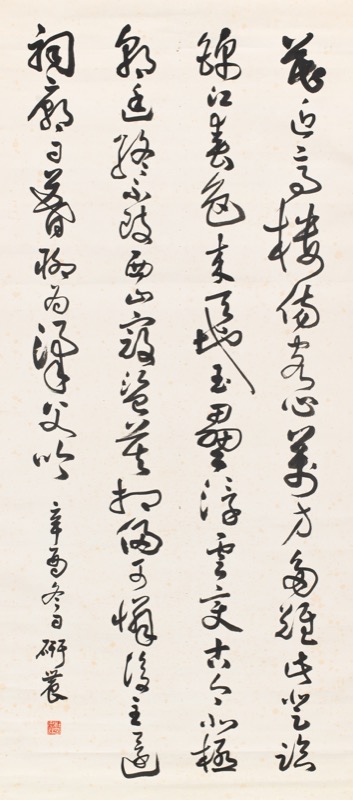 花近高樓傷客心萬方多難此登臨
錦江春色來天地玉壘浮雲變古今北極
朝廷終不改西山寇盜莫相侵可憐後主還
祠廟日暮聊為梁父吟
辛酉冬日研農